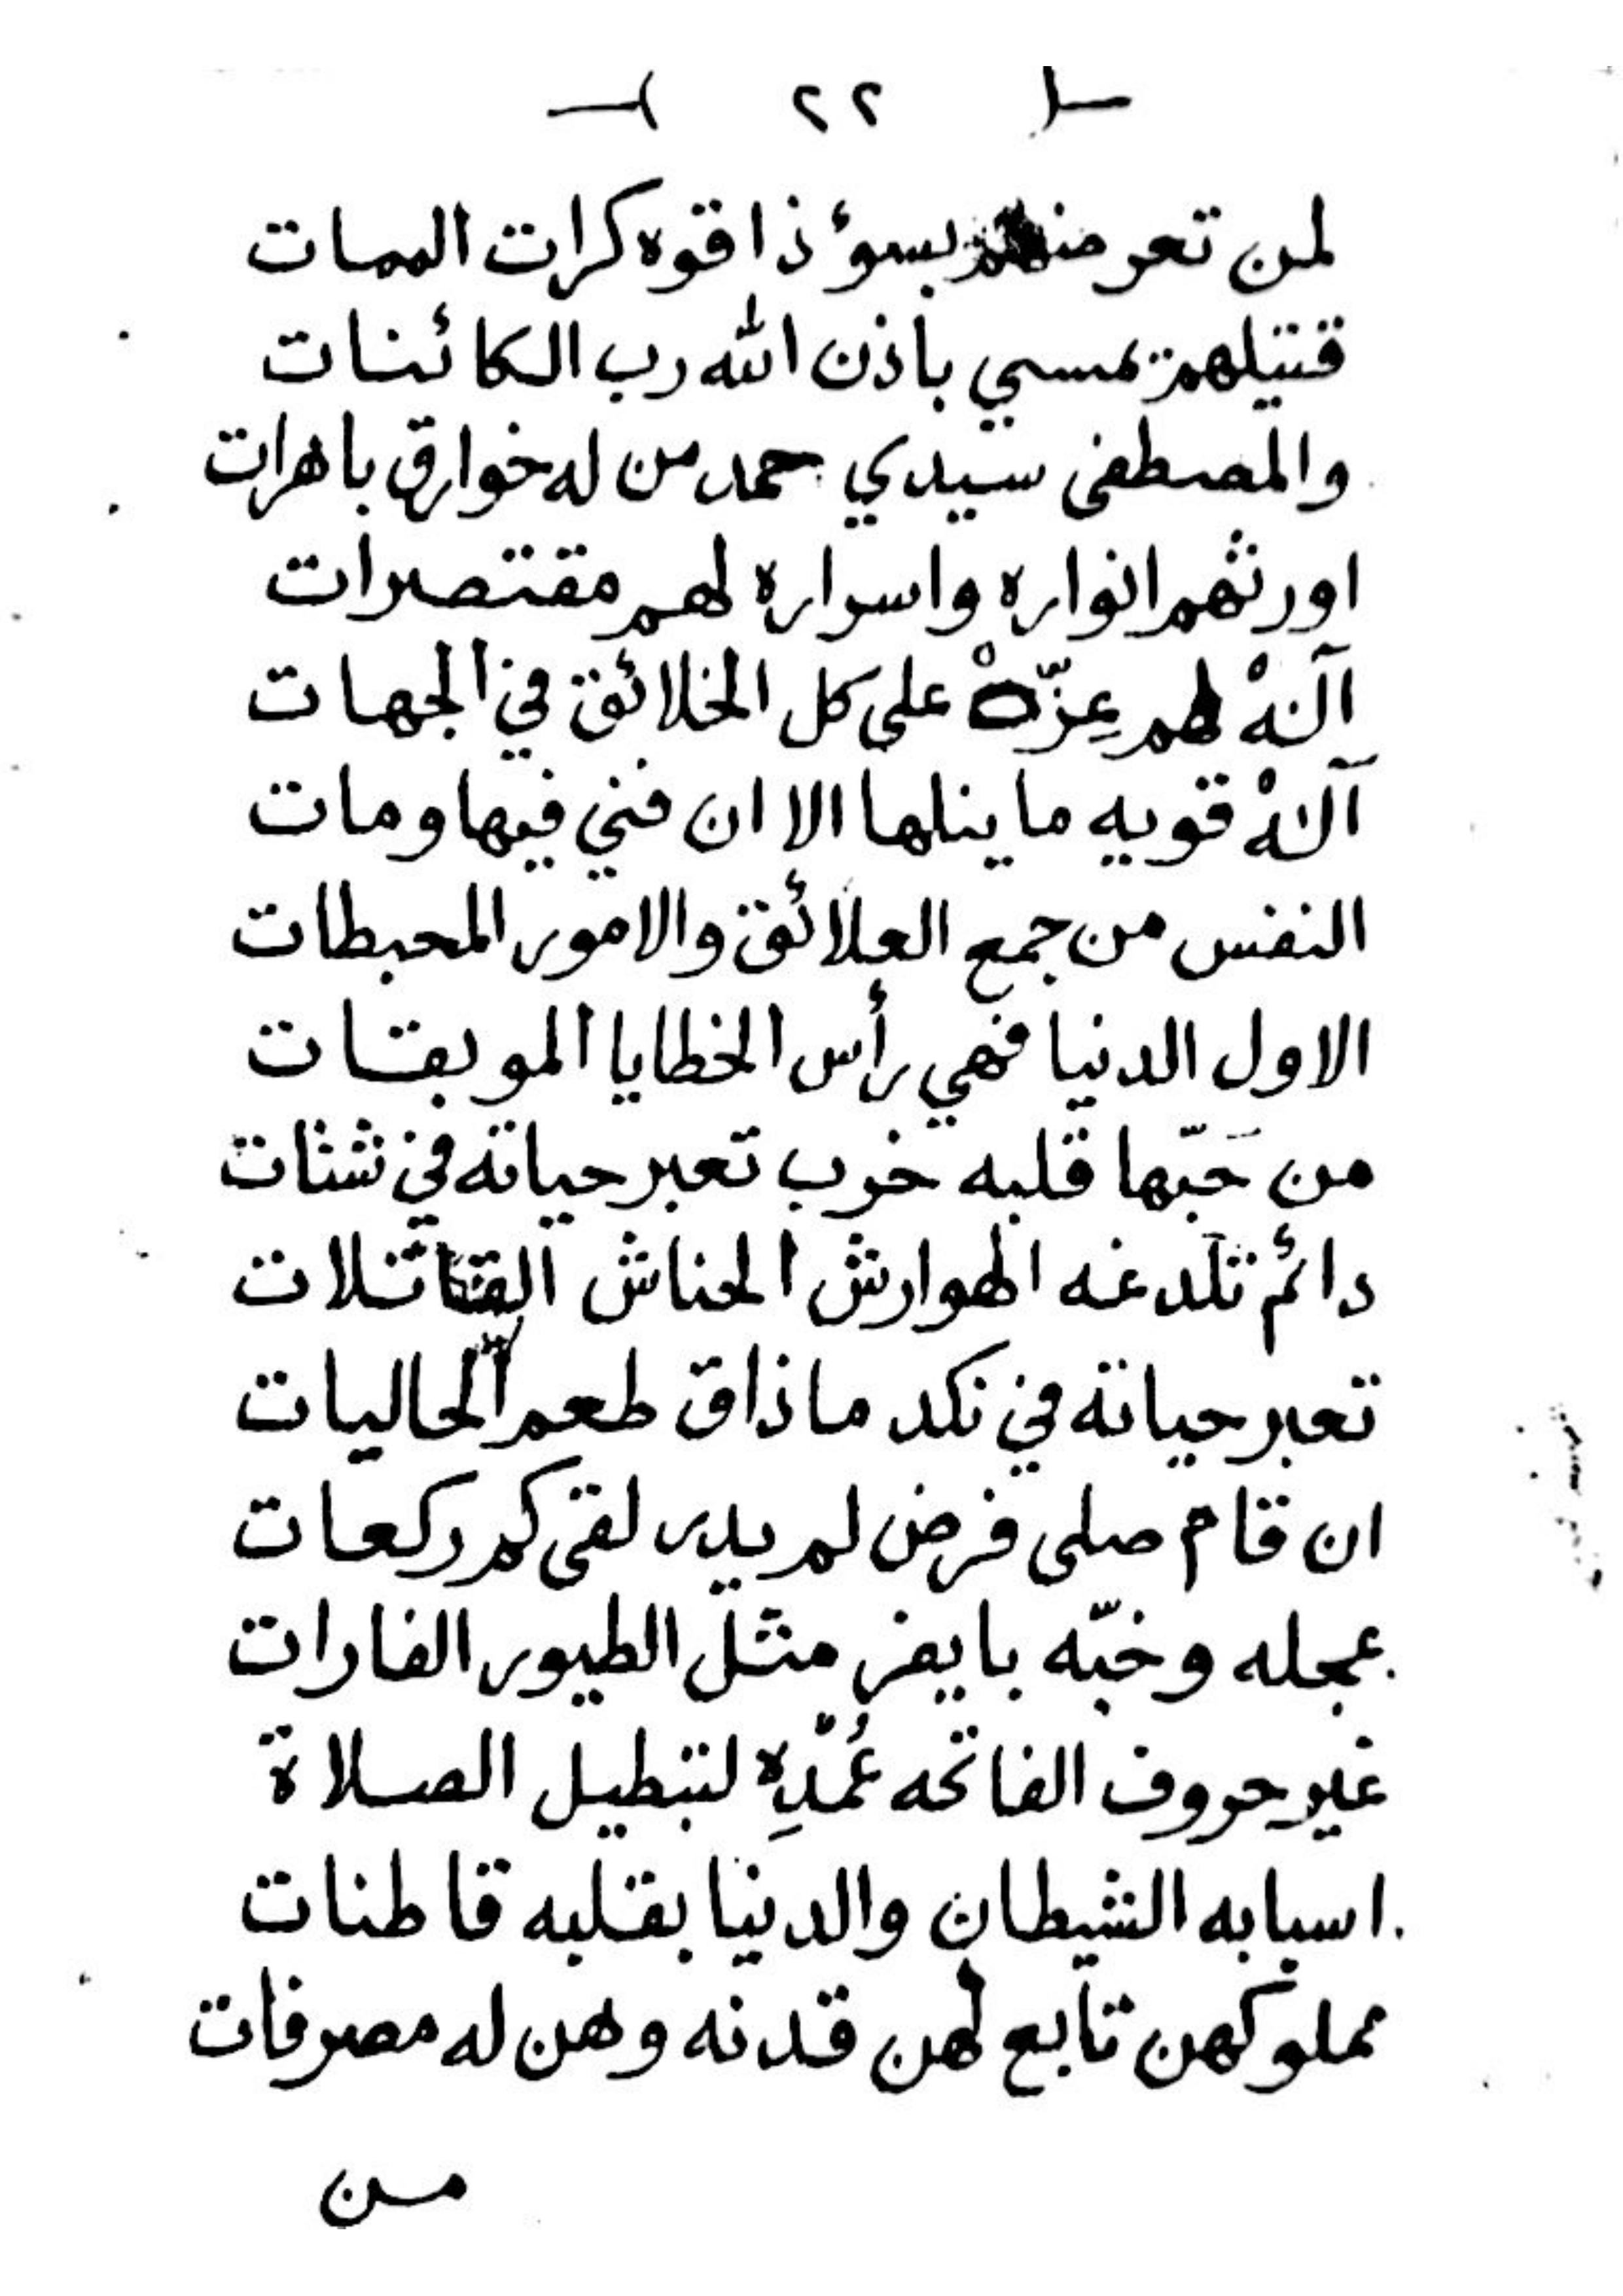 ٢٢
لمن تعرضهم بسوء ذاقوه كرات الممات
قتيلهم يمسي باذن الله رب الكائنات
والمصطفى سيدي حمد من له خوارق باهرات
اورثهم انواره واسراره لهم مقتصرات
آلَنهْ لهم عِزّهْ على كل الخلائق في الجهات
آلَنهْ قويه ما ينلها الا ان فني فيها ومات
النفس من جمع العلائق والامور المحبطات
الاول الدنيا فهي رأس الخطايا الموبقات
من حَبّها قلبه خرب تعبر حياته في شتات
دائم تلدغه الهوارش الحناش القاتلات
تعبر حياته في نكد ما ذاق طعم الحاليات
ان قام صلى فرض لم يدر لقى كم ركعات
عجله وخبّه بايفز مثل الطيور الفارات
غير حروف الفاتحه عُمْدِه لتبطيل الصلاة
اسبابه الشيطان والدنيا بقلبه قاطنات
مملوكهن تابع لهن قدنه وهن له مصرفات
من